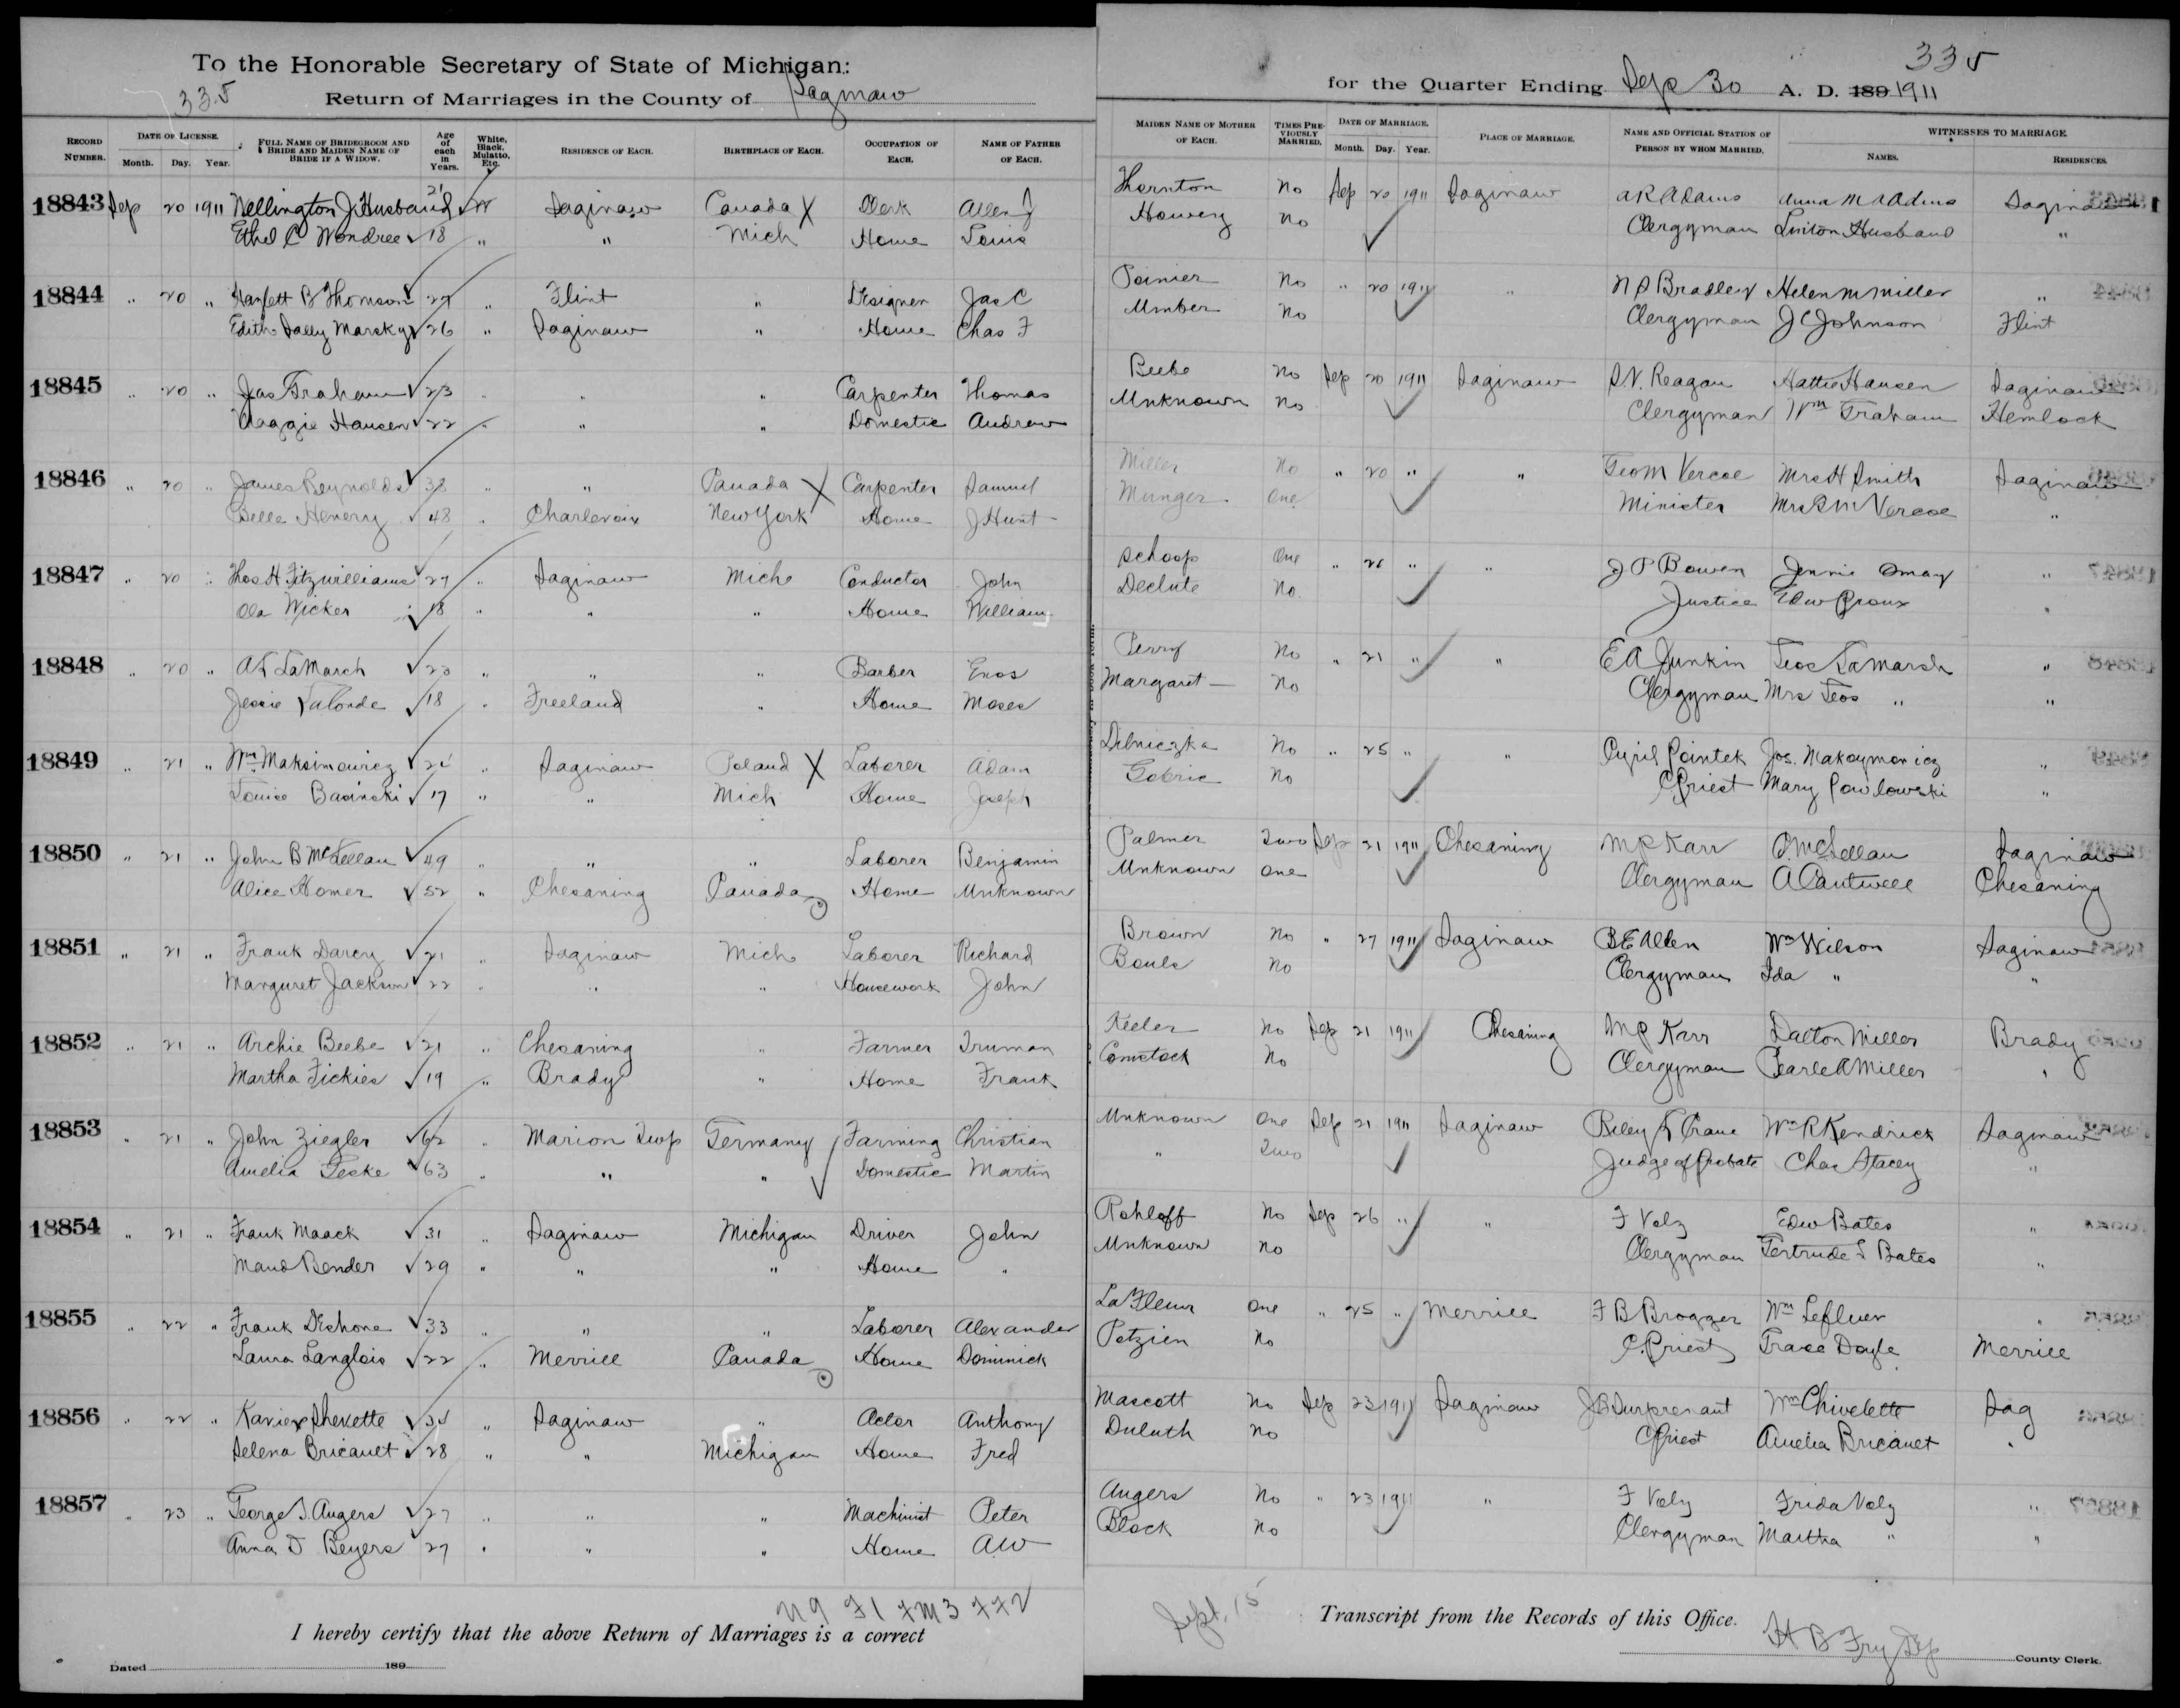 To the Honorable Secretary of State of Michigan:
335
Return of Marriages in the County of Saginaw
for the Quarter Ending Sep 30 A. D. 189 1911
335
RECORD NUMBER. DATE OF LICENSE. Month. Day. Year. FULL NAME OF BRIDEGROOM AND BRIDE AND MAIDEN NAME OF BRIDE IF A WIDOW. Age of each in Years. White, Black, Mulatto, Etc. RESIDENCE OF EACH. BIRTHPLACE OF EACH. OCCUPATION OF EACH. NAME OF FATHER OF EACH. MAIDEN NAME OF MOTHER OF EACH. TIMES PREVIOUSLY MARRIED. DATE OF MARRIAGE. Month. Day. Year. PLACE OF MARRIAGE. NAME AND OFFICIAL STATION OF PERSON BY WHOM MARRIED. WITNESSES TO MARRIAGE NAMES. RESIDENCES.
18843 Sep 20 1911 Wellington J Husband 21 W Saginaw Canada X Clerk Allen J Thornton No Sep 20 1911 Saginaw A R Adams Anna M Adams Saginaw
Ethel C 18 " " Mich Home Louis Howery No Clergyman Linton Husband "
18844 " 20 " B Thomson 27 " Flint " Designer Jas C Poinier No " 20 1911 " N S Bradley Helen M Miller "
Edith Sally 26 " Saginaw " Home Chas F Umber No Clergyman J C Johnson Flint
18845 " 20 " Jas Graham 23 " " " Carpenter Thomas Beebe No Sep 20 1911 Saginaw S. V. Reagan Hattie Hansen Saginaw
Maggie Hansen 22 " " " Domestic Andrew Unknown No Clergyman Wm Graham Hemlock
18846 " 20 " James Reynolds 38 " " Canada X Carpenter Samuel Miller No " 20 " " Geo M Vercoe Mrs H Smith Saginaw
Belle Henery 48 " Charlevoix New York Home J Hunt Munger One Minister Mrs G M Vercoe "
18847 " 20 " Thos H Fitzwilliams 27 " Saginaw Mich Conductor John Schoop One " 26 " " J P Bowen Jennie Omay "
Ola Wicker 18 " " " Home William Declute No Justice Edw Proux "
18848 " 20 " A L LaMarch 23 " " " Barber Enos Perry No " 21 " " E A Junkin Geos LaMarsh "
Jessie LaLonde 18 " Freeland " Home Moses Margaret — No Clergyman Mrs Geos " "
18849 " 21 " Wm Maksimowicz 21 " Saginaw Poland X Laborer Adam No " 25 " " Cyril Pointek Jos. Makoymonicz "
Louise Basinski 17 " " Mich Home Joseph Gobrie No C Priest Mary Pawlowski "
18850 " 21 " John B McLellan 49 " " " Laborer Benjamin Palmer Two Sep 21 1911 Chesaning M P Karr O. McLellan Saginaw
Alice Homer 52 " Chesaning Canada Home Unknown Unknown One Clergyman A Cantwell Chesaning
18851 " 21 " Frank Darcy 21 " Saginaw Mich Laborer Richard Brown No " 27 1911 Saginaw B E Allen Wm Wilson Saginaw
Margaret Jackson 22 " " " Housework John Bouls No Clergyman Ida " "
18852 " 21 " Archie Beebe 21 " Chesaning " Farmer Truman Keeler No Sep 21 1911 Chesaning M P Karr Dalton Miller Brady
Martha Fickies 19 " Brady " Home Frank Comstock No Clergyman Pearle A Miller "
18853 " 21 " John Ziegler 62 " Marion Twp Germany Farming Christian Unknown One Sep 21 1911 Saginaw Riley L Crane Wm R Kendrick Saginaw
Amelia Geske 63 " " " Domestic Martin " Two Judge of Probate Chas Stacey "
18854 " 21 " Frank Maack 31 " Saginaw Michigan Driver John Rohloff No Sep 26 " " F Volz Edw Bates "
Maud Bender 29 " " " Home " Unknown No Clergyman Gertrude L Bates "
18855 " 22 " Frank Dishone 33 " " " Laborer Alexander LaFleur One " 25 " Merrill F B Brogger Wm Lefluer "
Laura Langlois 22 " Merrill Canada Home Dominick Petzien No C. Priest Grace Doyle Merrill
18856 " 22 " Xavier Shevette 34 " Saginaw " Actor Anthony Mascott No Sep 23 1911 Saginaw J B Surprenant Wm Chivelette Sag
Selena Bricault 28 " " Michigan Home Fred Duluth No C Priest Amelia Bricault "
18857 " 23 " George J. Augers 27 " " " Machinist Peter Augers No " 23 1911 " F Volz Frida Volz "
Anna D Beyers 27 " " " Home A W Block No Clergyman Martha " "
N9 F1 FM3 FF2
Sept. 15
I hereby certify that the above Return of Marriages is a correct Transcript from the Records of this Office.
H B Fry Dep
Dated 189 County Clerk.